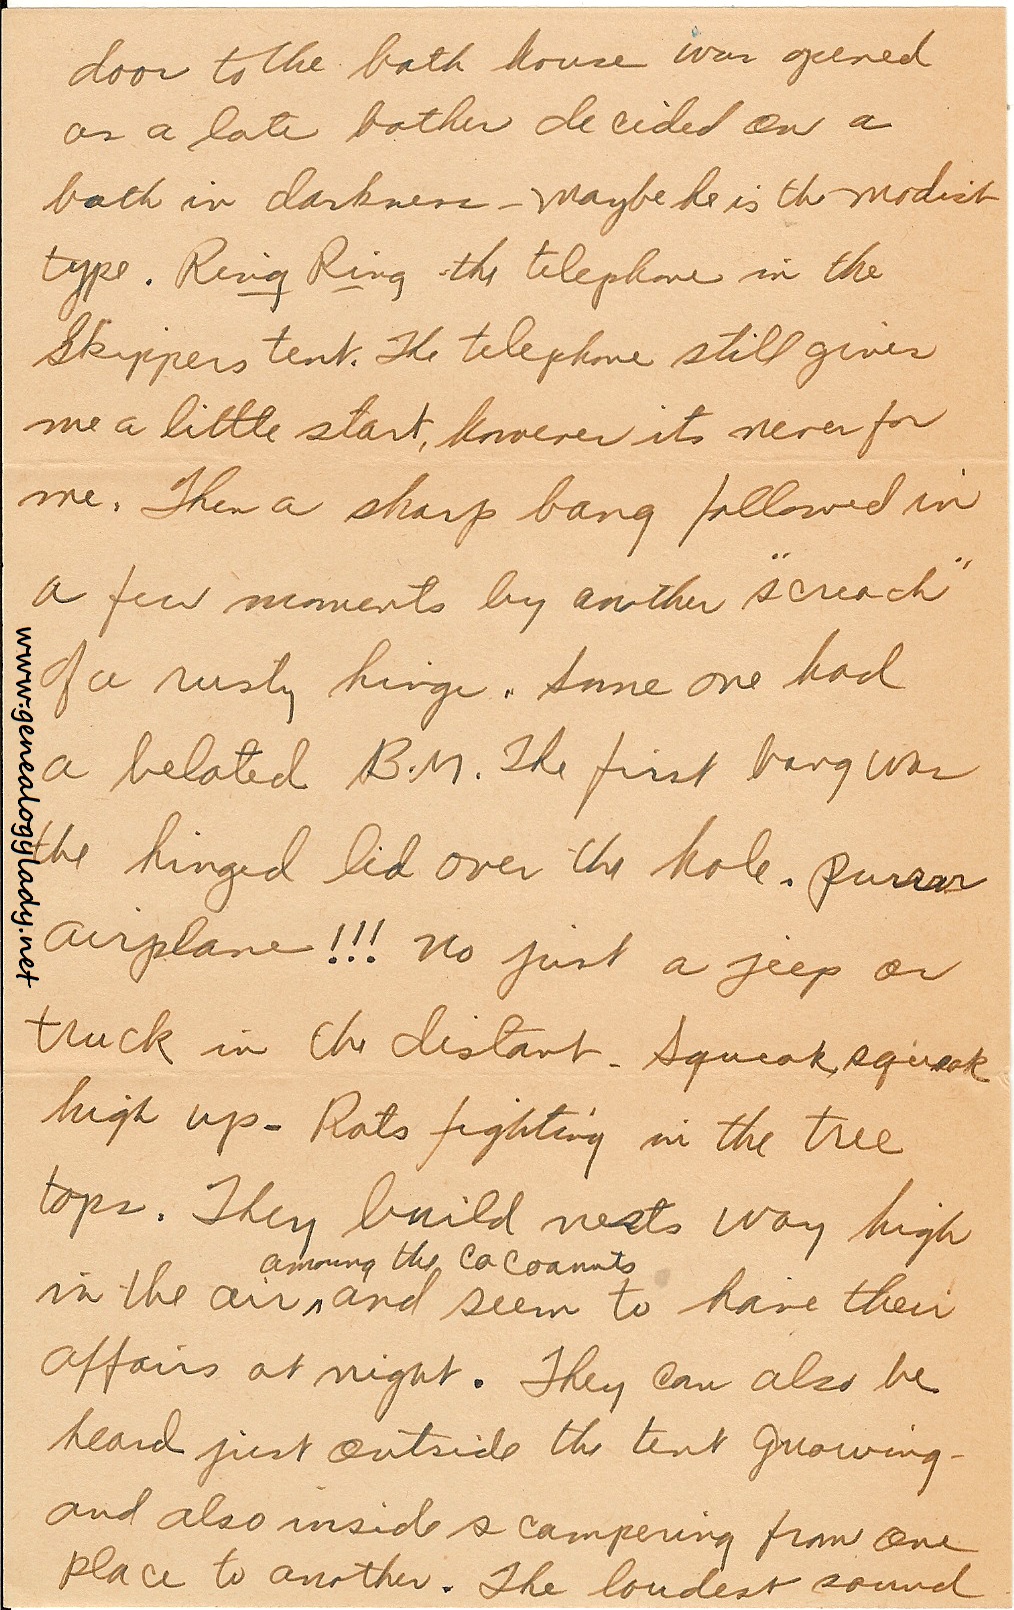 door to the bath house was opened
as a late bather decided on a
bath in darkness - maybe he is the modist
type. Ring Ring the telephone in the
Skippers tent. The telephone still gives
me a little start, however its never for
me. Then a sharp bang followed in
a few moments by another "screach"
of a rusty hinge. Some one had
a belated B.M. The first bang was
the hinged lid over the hole. Purrrr
airplane!!! No just a jeep or
truck in the distant - Squeak, squeak
high up - Rats fighting in the tree
tops. They build nests way high
among the cocoanuts
in the air, and seem to have their
affairs at night. They can also be
heard just outside the tent gnawing -
and also inside scampering from one
place to another. The loudest sound
www.genealogylady.net